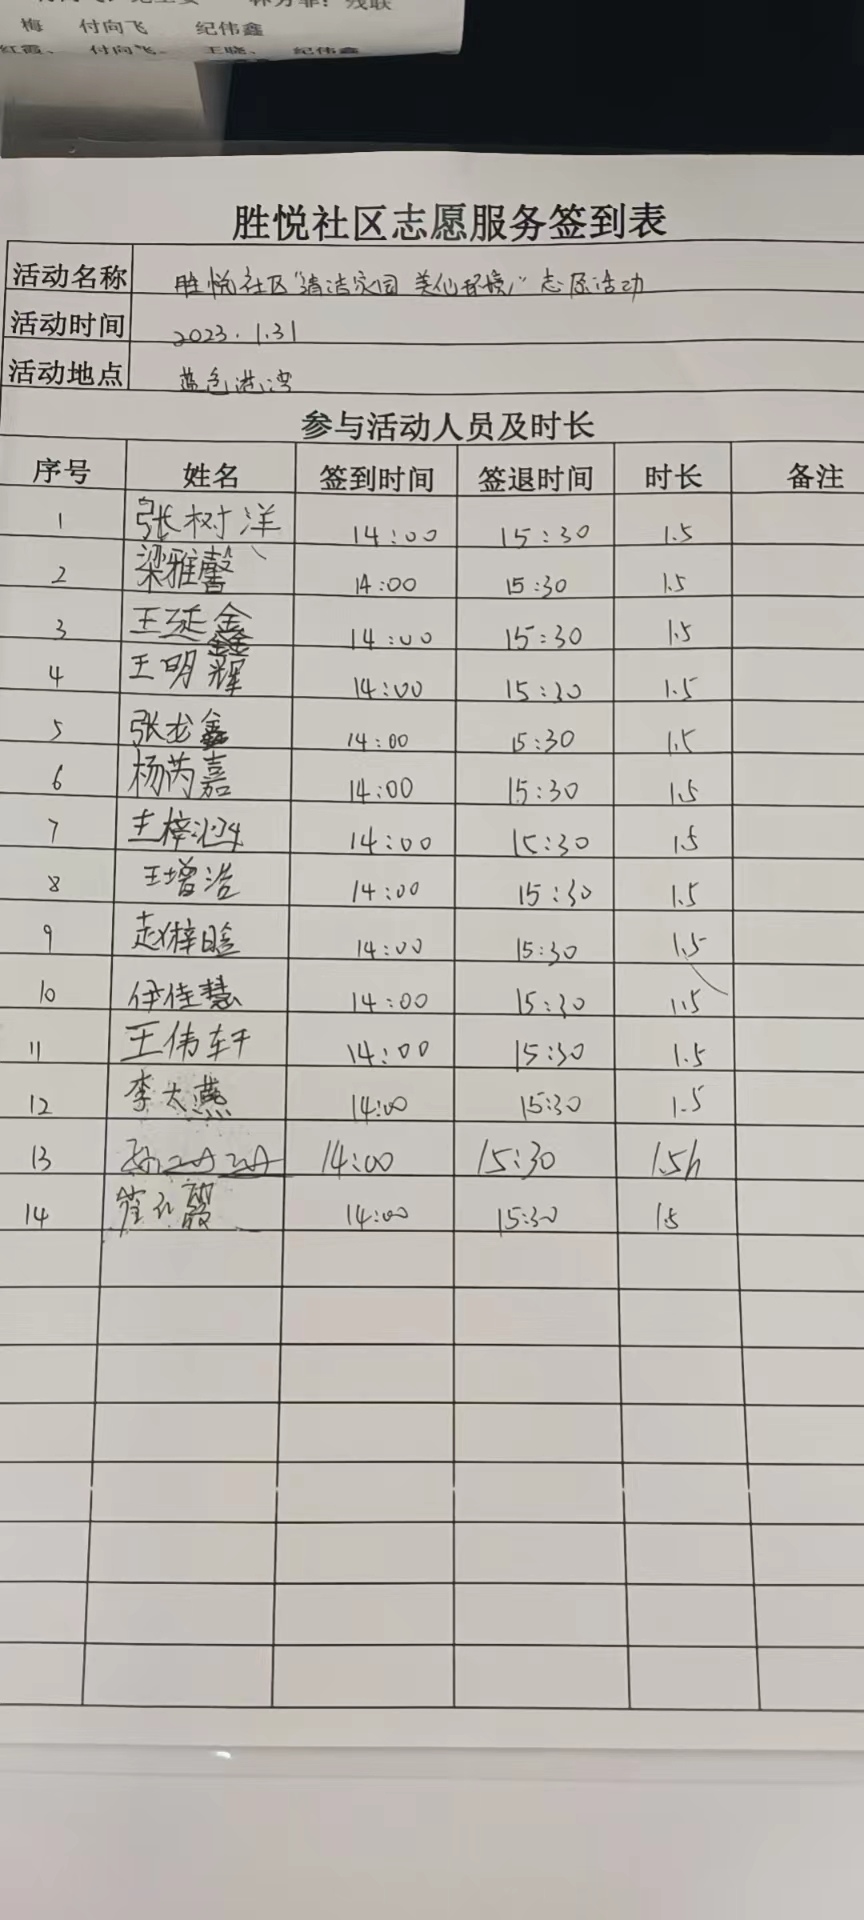 梅 付向飞 纪伟鑫
红霞、 付向飞、 王晓、 纪伟鑫
胜悦社区志愿服务签到表
活动名称 胜悦社区“清洁家园 美化环境”志愿活动
活动时间 2023.1.31
活动地点 蓝色港湾
参与活动人员及时长
序号 姓名 签到时间 签退时间 时长 备注
1 张树洋 14:00 15:30 1.5
2 梁雅馨 14:00 15:30 1.5
3 王延鑫 14:00 15:30 1.5
4 王明辉 14:00 15:30 1.5
5 张龙鑫 14:00 15:30 1.5
6 杨芮嘉 14:00 15:30 1.5
7 王梓涵 14:00 15:30 1.5
8 王增浩 14:00 15:30 1.5
9 赵梓晗 14:00 15:30 1.5
10 伊佳慧 14:00 15:30 1.5
11 王伟轩 14:00 15:30 1.5
12 李大燕 14:00 15:30 1.5
13 14:00 15:30 1.5h
14 14:00 15:30 1.5